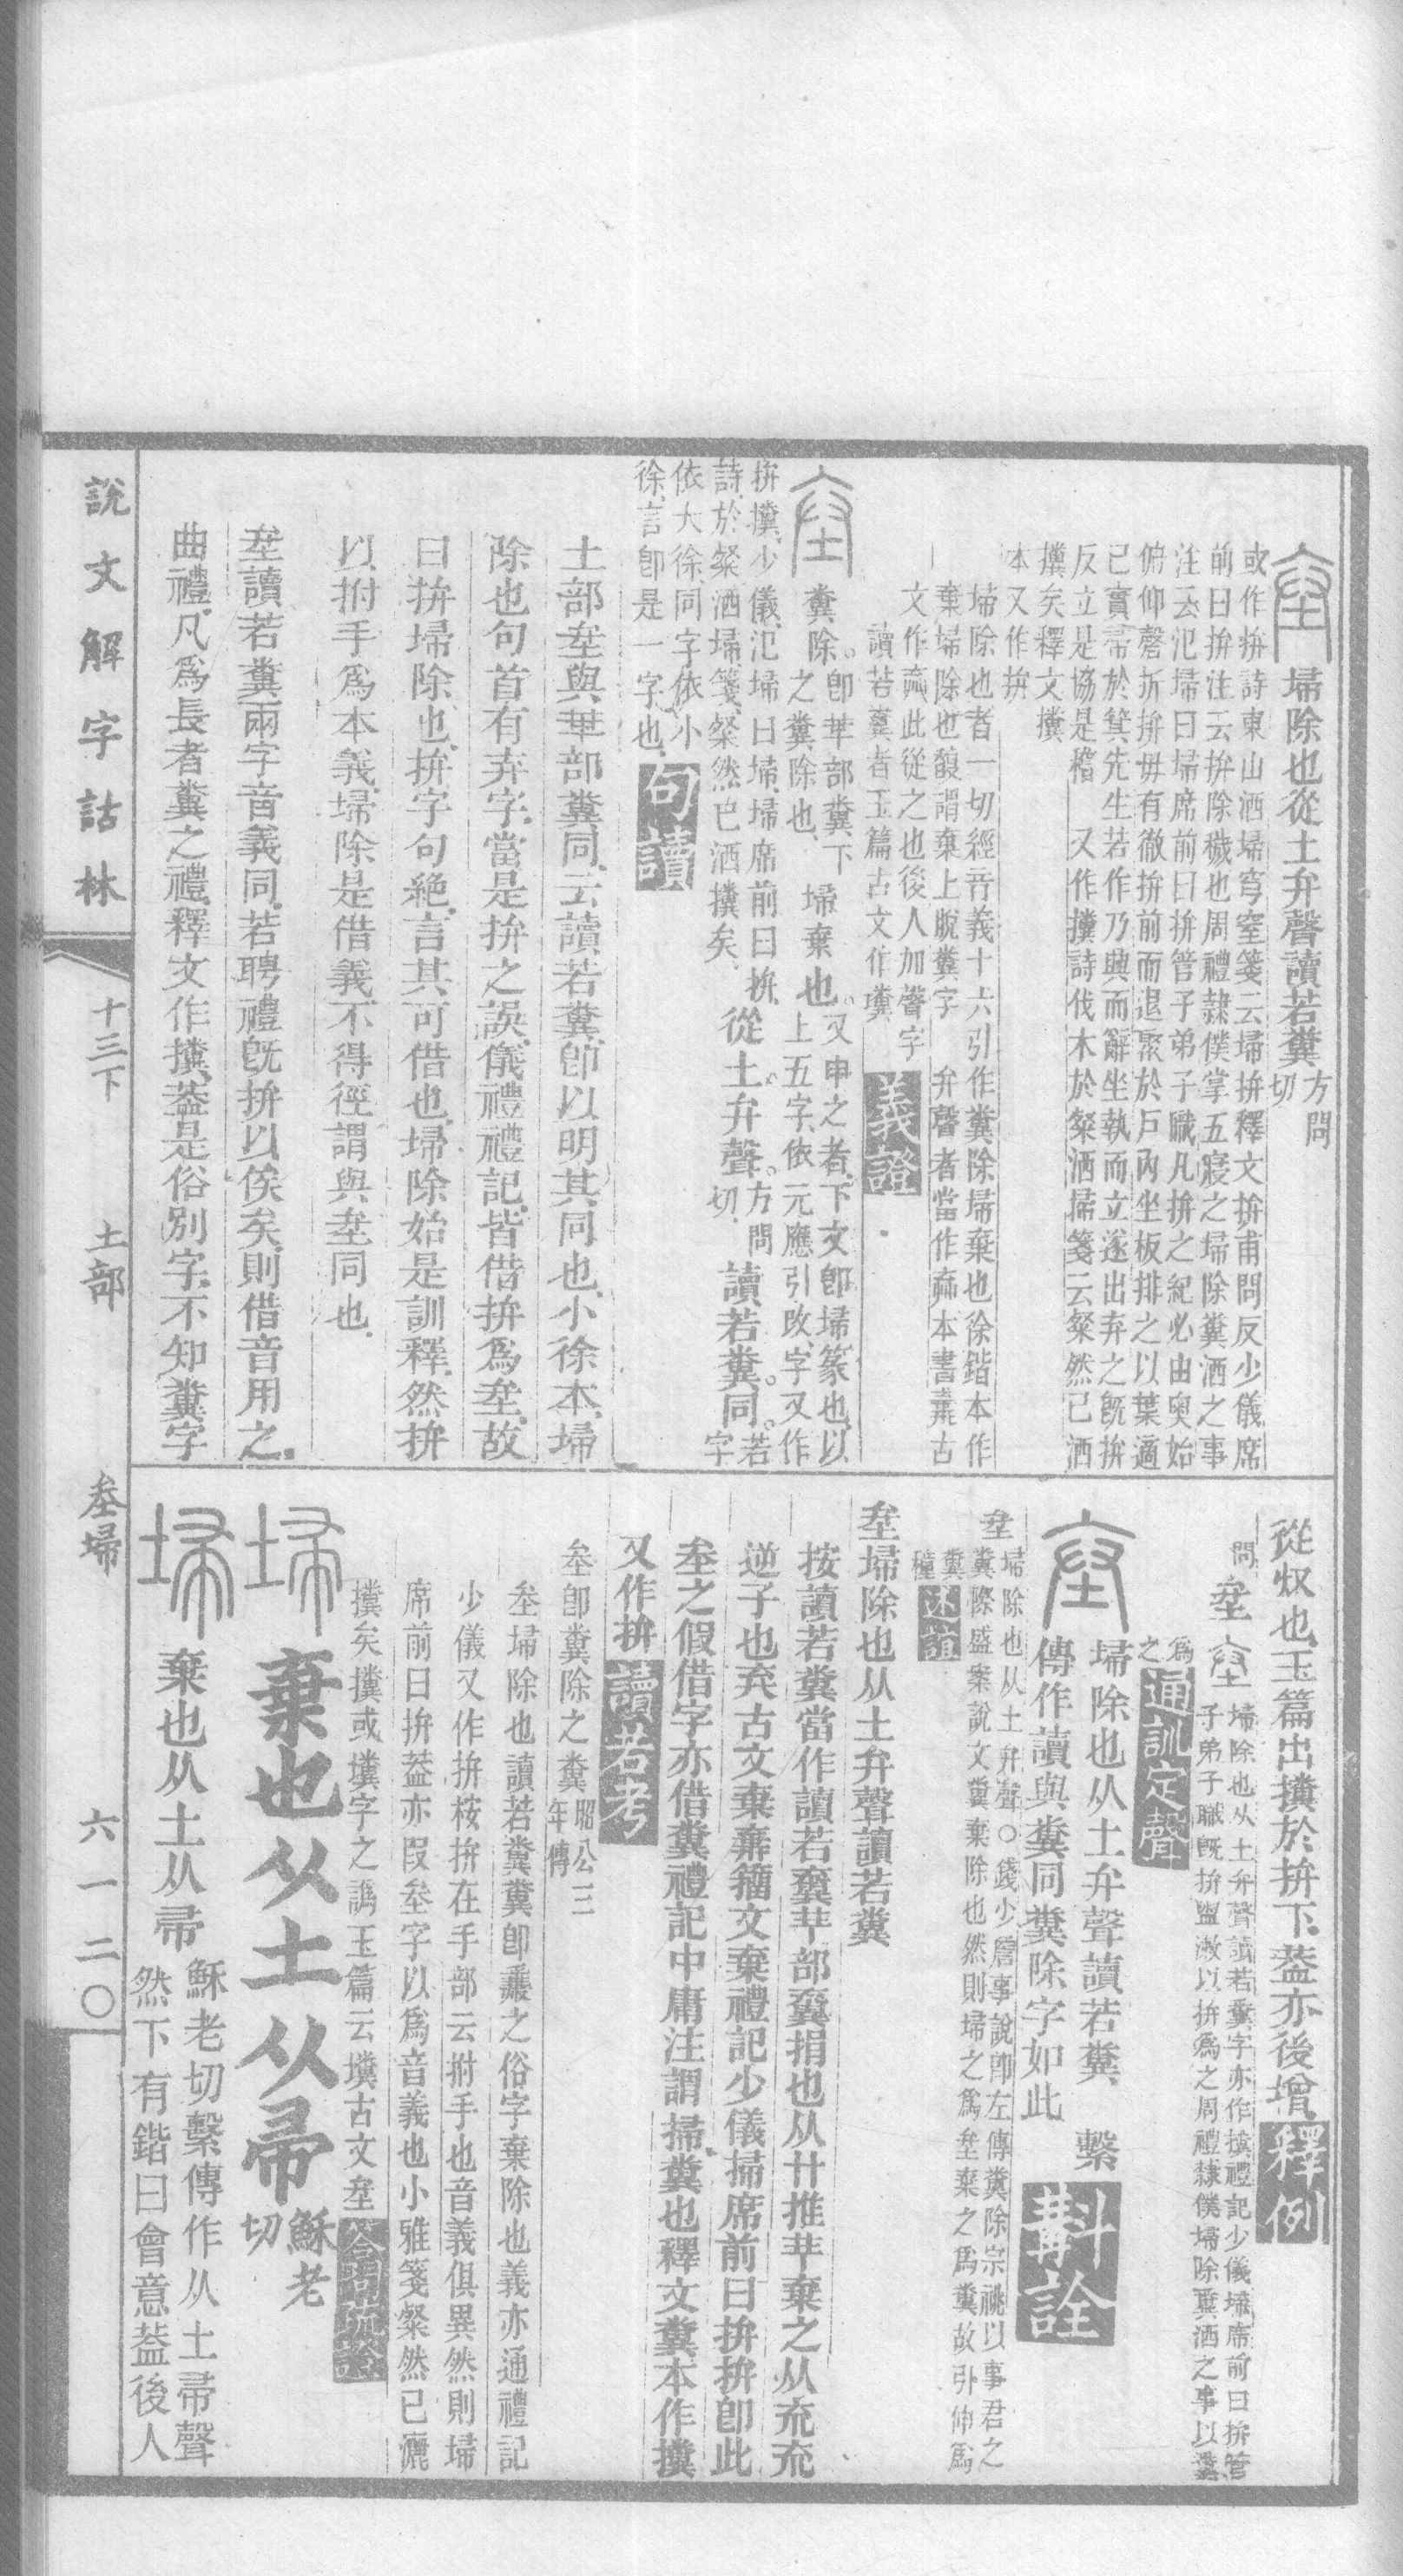 埽除也從土弁聲讀若糞方問切
或作拚詩東山洒埽穹窒箋云埽拚釋文拚甫問反少儀席
前曰拚注云拚除穢也周禮隸僕掌五寢之埽除糞洒之事
注云氾埽曰埽席前曰拚管子弟子職凡拚之紀必由奧始
俯仰磬折拚毋有徹拚前而退聚於戶內坐板排之以葉適
己實帚於箕先生若作乃興而辭坐執而立遂出弃之既拚
反立是協是稽 又作㩓詩伐木於粲洒埽箋云粲然已洒
㩓矣釋文㩓
本又作拚
埽除也者一切經音義十六引作糞除埽棄也徐鍇本作
棄埽除也馥謂棄上脫糞字 弁聲者當作𠔜本書糞古
文作𠔜此從之也後人加聲字
讀若糞者玉篇古文作㙻
義證
糞除。卽𠦒部糞、下之糞除也、埽棄也。又申之者、下文卽埽篆也、以上五字、依元應引改、字又作
拚㩓、少儀、氾埽曰埽、埽席前曰拚、
詩、於粲洒埽、箋、粲然已洒㩓矣、
從土弁聲。方問切、讀若糞。同。若字
依大徐、同字依小
徐、言卽是一字也、
句讀
土部坌與𠦒部糞同、云讀若糞、卽以明其同也、小徐本、埽
除也句首有弃字、當是拚之誤、儀禮禮記、皆借拚爲坌、故
曰拚埽除也、拚字句絕、言其可借也、埽除始是訓釋、然拚
以拊手爲本義、埽除是借義、不得徑謂與坌同也、
坌讀若糞、兩字音義同、若聘禮旣拚以俟矣、則借音用之、
曲禮、凡爲長者糞之禮、釋文作㩓、葢是俗別字、不知糞字
從𠬞也、玉篇出㩓於拚下、葢亦後增、
釋例
問坌
埽除也从土弁聲讀若糞字亦作㩓禮記少儀埽席前曰拚管
子弟子職旣拚盥漱以拚爲之周禮隸僕埽除糞洒之事以糞
爲之
通訓定聲
埽除也从土弁聲讀若糞、 繫
傳作讀與糞同糞除字如此
斠詮
坌
埽除也从土弁聲〇錢少詹事說卽左傳糞除宗祧以事君之
糞除盛案說文糞棄除也然則埽之爲坌棄之爲糞故引伸爲
糞穜
述誼
坌埽除也从土弁聲讀若糞
按讀若糞當作讀若𥻔𠦒部𥻔捐也从廾推𠦒棄之从𠫓𠫓
逆子也弃古文棄𠔉籒文棄禮記少儀掃席前曰拚拚卽此
坌之假借字亦借糞禮記中庸注謂掃糞也釋文糞本作㩓
又作拚
讀若考
坌卽糞除之糞昭公三年傳
坌埽除也讀若糞糞卽𥻔之俗字棄除也義亦通禮記
少儀又作拚桉拚在手部云拊手也音義俱異然則埽
席前曰拚葢亦叚坌字以爲音義也小雅箋粲然已灑
㩓矣㩓或㙻字之譌玉篇云㙻古文坌
埽 棄也从土从帚穌老切
棄也从土从帚穌老切繫傳作从土帚聲
然下有鍇曰會意葢後人
說文解字詁林 十三下 土部 坌埽 六一二〇